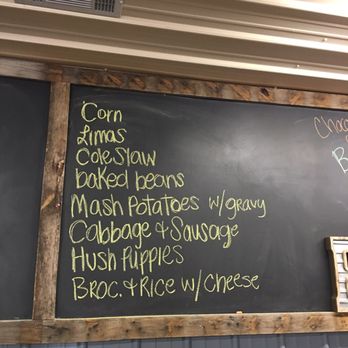 Corn
Limas
Coleslaw
baked beans
Mash Potatoes w/gravy
Cabbage & Sausage
Hush Puppies
Broc. & Rice w/ Cheese